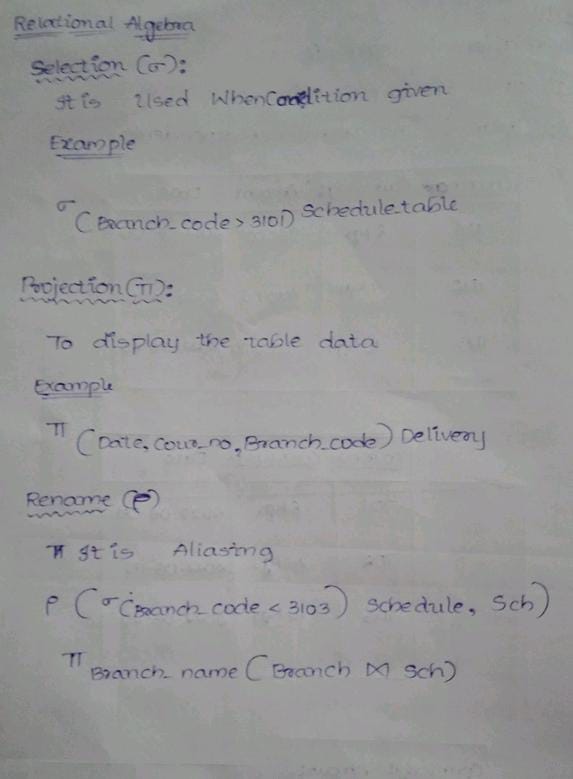 Relational Algebra
Selection (σ):
It is Used When Condition given
Example
σ (Branch_code > 3101) Schedule_table
Projection (π):
To display the table data
Example
π (Date, Cour_no, Branch_code) Delivery
Rename (ρ)
It is Aliasing
ρ (σ (Branch_code < 3103) Schedule, Sch)
π Branch_name (Branch ⋈ Sch)